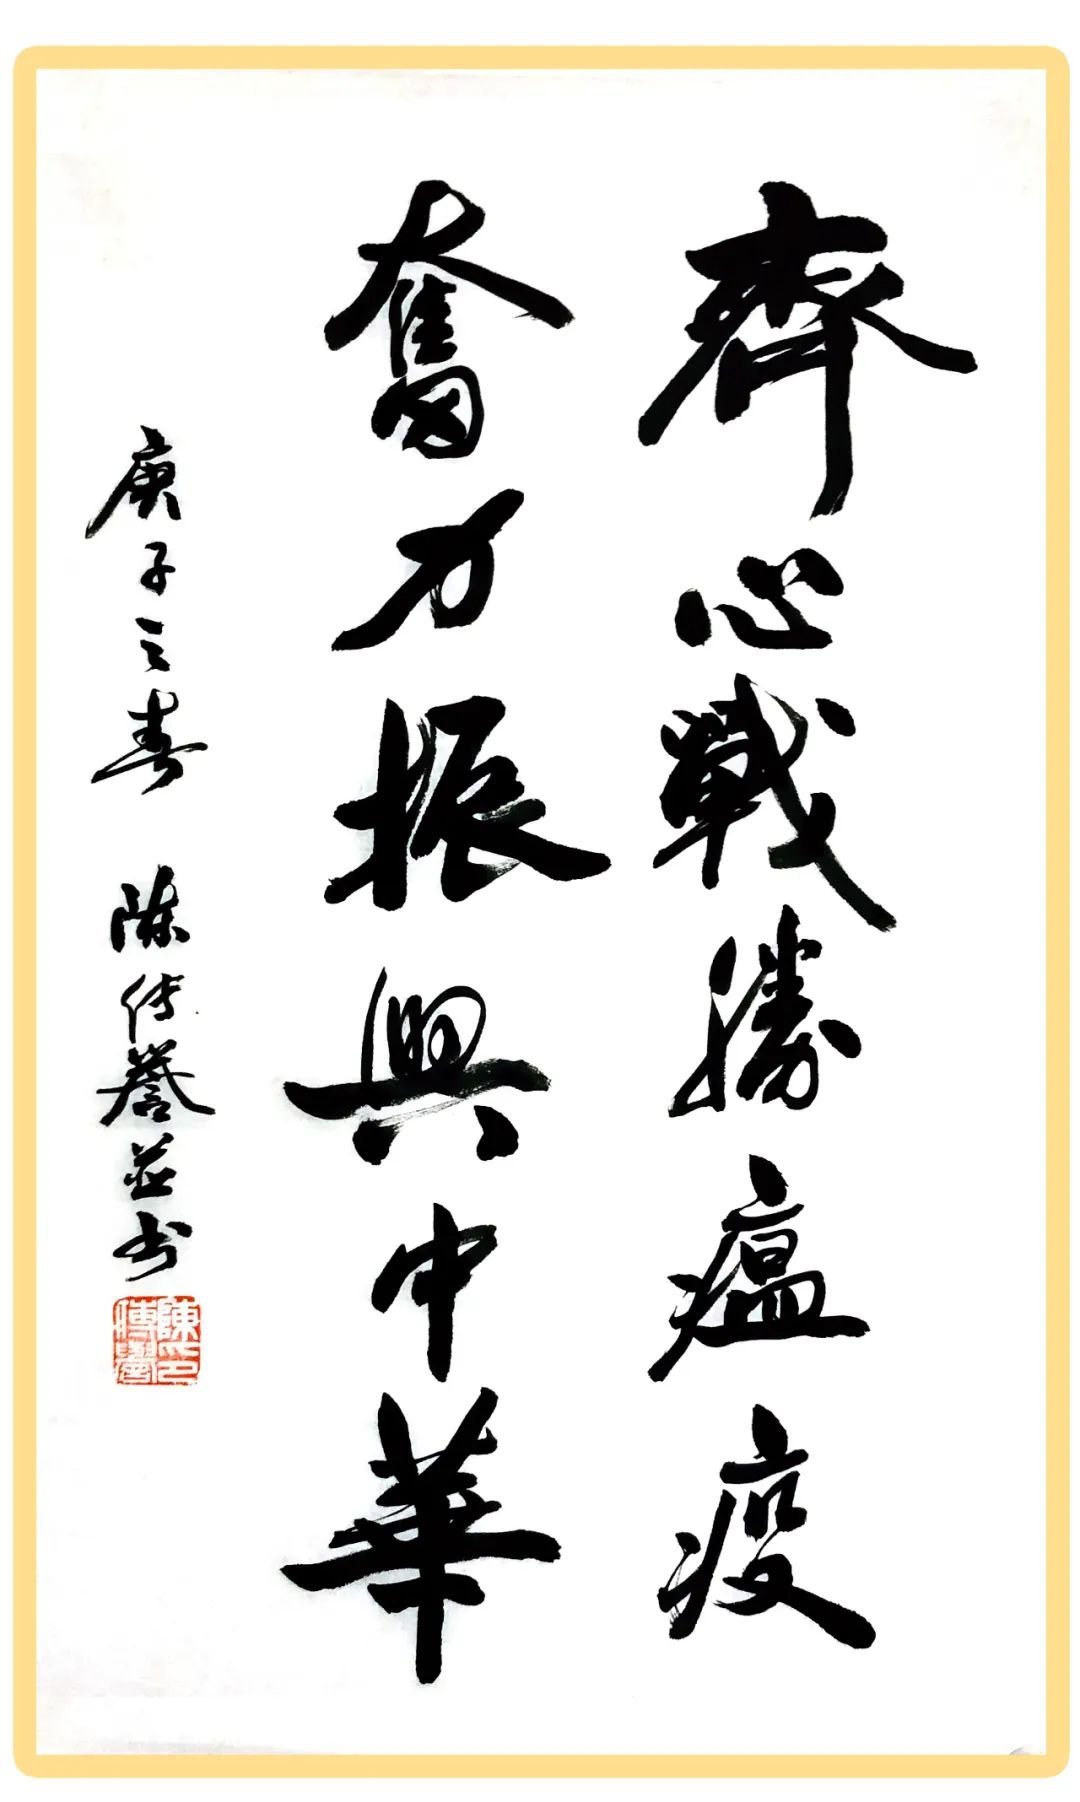 齊心戰勝瘟疫
奮力振興中華
庚子之春 陈传誉並书
陳印傳譽